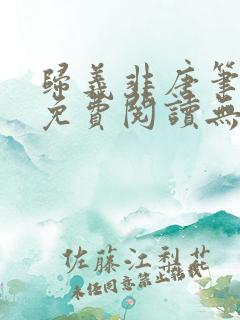 歸義非唐筆
免費閱讀無
佐藤江梨花
未经同意禁止转载